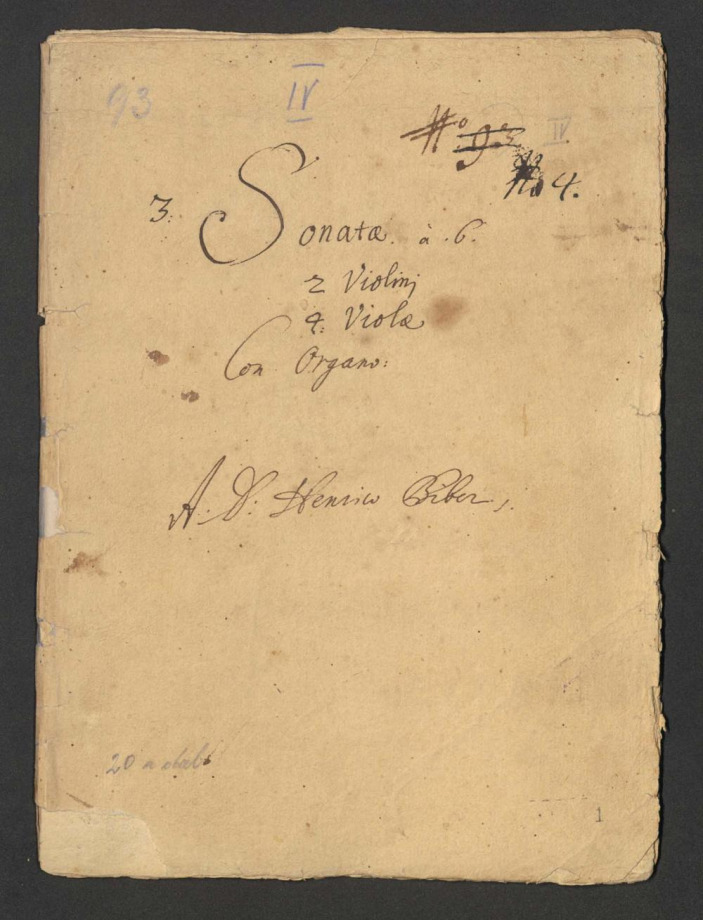 93
IV
No. 93
IV
No 4.
3. Sonatæ. à .6.
2 Violinj
4: Violæ
Con Organo:
A. D. Henrico Biber,
20 a
1